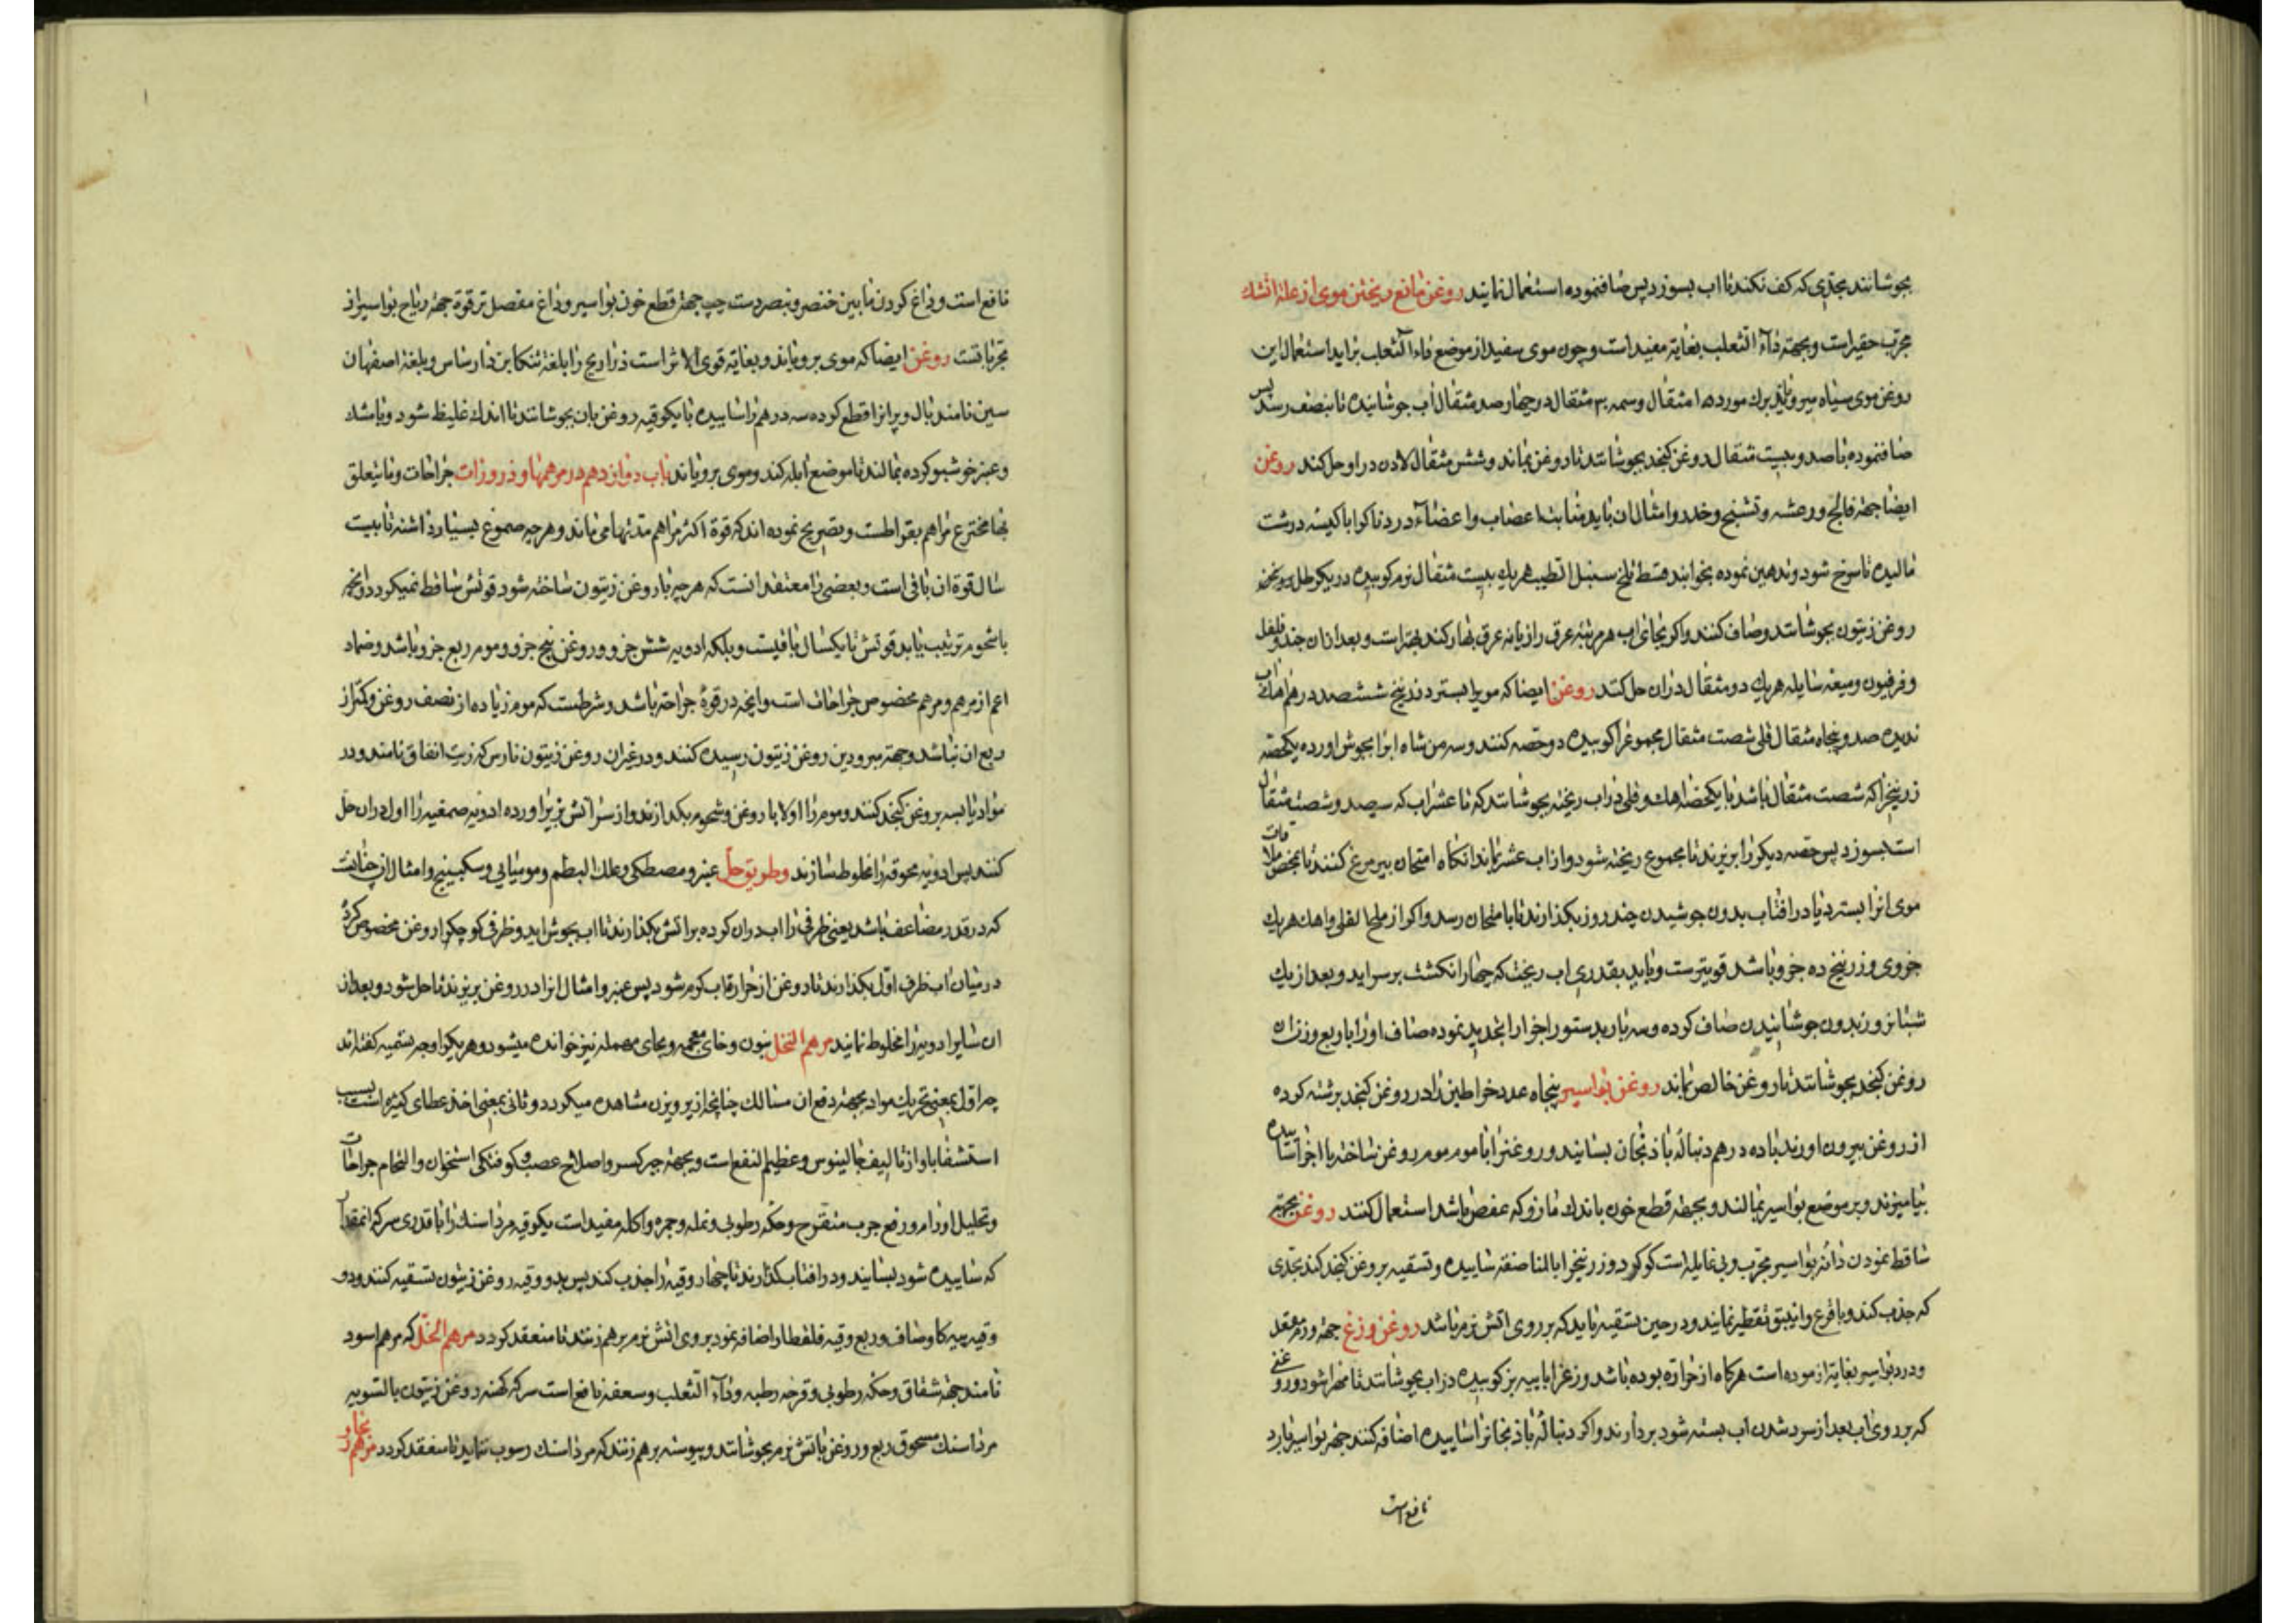 بجوشانند بحدی که کف نکند تا اب بسوزد پس صاف نموده استعمال نمایند روغن مانع ریختن موی از علة اتشک
مجرب حقیر است و بجهة داء الثعلب بغایة مفید است و چون موی سفید از موضع داء الثعلب براید استعمال این
روغن موی سیاه میرویاند برک مورد ۱۵ مثقال وسمه ۳۰ مثقال در چهار صد مثقال اب جوشانیده تا بنصف رسد پس
صاف نموده با صد و بیست مثقال روغن کنجد بجوشانند تا روغن بماند و شش مثقال لادن در او حل کند روغن
ایضا جهة فالج و رعشه و تشنج و خدر و امثال ان باید منابت اعصاب و اعضاء دردناک را با کیسه درشت
مالیده تا سرخ شود و تدهین نموده بخوابند قسط تلخ سنبل الطیب هریک بیست مثقال نرم کوبیده در یکرطل و نیم
روغن زیتون بجوشانند و صاف کنند و اکر بجای اب هر مرتبه عرق رازیانه عرق بهار کند بهتر است و بعد از ان جند و فلفل
و فرفیون و میعه سایله هریک دو مثقال دران حل کنند روغن ایضا که مویرا بسترد زرنیخ ششصد درهم اهک اب
ندیده صد و پنجاه مثقال قلی شصت مثقال مجموع را کوبیده دو حصه کنند و سه من شاه ابرا بجوش اورده یکحصه
زرنیخ را که شصت مثقال باشد با یکحصه اهک و قلی دراب ریخته بجوشانند که تا عشر اب که سیصد و شصت مثقال
است بسوزد پس حصه دیکر را بریزند تا مجموع ریخته شود و از اب عشر بماند انکاه امتحان بپر مرغ کنند تا بمحض ملاقات
موی انرا بسترد یا در افتاب بدون جوشیدن چند روز بکذارند تا بامتحان رسد و اکر از ملح القلی و اهک هریک
جزوی و زرنیخ ده جزو باشد قویترست و باید بقدری اب ریخت که چهار انکشت بر سر اید و بعد از یک
شبانروز بدون جوشانیدن صاف کرده و سه بار بدستور اجزا را تجدید نموده صاف اورا با ربع وزن ان
روغن کنجد بجوشانند تا روغن خالص بماند روغن بواسیر پنجاه عدد خراطین را در روغن کنجد برشته کرده
از روغن بیرون اورند با ده درهم دنباله باذنجان بسایند و روغنرا با موم موم روغن ساخته با اجزا ساییده
بیامیزند و بر موضع بواسیر بمالند و بجهة قطع خون باندک مازو که عفص باشد استعمال کنند روغن بجهة
ساقط نمودن دانه بواسیر مجرب و بی غایله است کوکرد و زرنیخ را بالمناصفه ساییده و تسقیه بروغن کنجد کند بحدی
که جذب کند و با قرع و انبیق تقطیر نمایند و در حین تسقیه باید که بر روی اتش نرم باشد روغن وزغ جهة ورم مقعد
و درد بواسیر بغایة ازموده است هرکاه از حرارة بوده باشد وزغ را با پیه بز کوبیده دراب بجوشانند تا مهرا شود و روغنی
که بر روی اب بعد از سرد شدن اب بسته شود بردارند و اکر دنباله باذنجانرا ساییده اضافه کنند جهة بواسیر بارد
نافع است
نافع است و داغ کردن مابین خنصر و بنصر دست چپ جهة قطع خون بواسیر و داغ مفصل ترقوة جهة ریاح بواسیر از
تجربیاتست روغن ایضا که موی برویاند و بغایة قوی الاثر است ذراریح را بلغة تنکابن دارساس و بلغة اصفهان
سین نامند بال و پر انرا قطع کرده سه درهم را ساییده با یکوقیه روغن بان بجوشانند تا اندک غلیظ شود و با مشک
و عنبر خوشبو کرده بمالند تا موضع ابله کند و موی برویاند باب دوازدهم در مرهمها و ذرورات جراحات و مایتعلق
بها مخترع مراهم بقراطست و تصریح نموده اند که قوة اکثر مراهم مدتها می ماند و هرچه صموغ بسیار داشته تا بیست
سال قوة ان باقی است و بعضی را معتقد انست که هرچه با روغن زیتون ساخته شود قوتش ساقط نمیکردد و انچه
با شحوم ترتیب یابد قوتش تا یکسال باقیست و بلکه ادویه شش جزو و روغن پنج جزو و موم ربع جزو باشد و ضماد
اعم از مرهم و مرهم مخصوص جراحات است و انچه در قوة جراحة باشد و شرطست که موم زیاده از نصف روغن و کمتر از
ربع ان نباشد و جهة مبرودین روغن زیتون رسیده کنند و در غیر ان روغن زیتون نارس که زیت انفاق نامند و در
مواد یابسه بروغن کنجد کنند و موم را اولا با روغن و شحوم بکدازند و از سر اتش بزیر اورده ادویه صمغیه را اول دران حل
کنند پس ادویه مسحوقه را مخلوط سازند و طریق حل عنبر و مصطکی و علک البطم و مومیایی و سکبینج و امثال ان چنانست
که در قدر مضاعف باشد یعنی ظرفی را اب دران کرده بر اتش بکذارند تا اب بجوش اید و ظرفی کوچک را روغن مخصوص کرده
در میان اب ظرف اول بکذارند تا روغن از حرارة اب کرم شود پس عنبر و امثال انرا در روغن بریزند تا حل شود و بعد از
ان سایر ادویه را مخلوط نمایند مرهم النخل بنون و خای معجمه و بحای مهمله نیز خوانده میشود و هریک را وجه تسمیه کفته اند
چه اول بمعنی تحریک مواد بجهة دفع ان مسالک چنانچه از پرویزن مشاهده میکردد و ثانی بمعنی اخذ عطای کثیره است بسبب
استشفا باو از تالیف جالینوس و عظیم النفع است و بجهة جبر کسر و اصلاح عصب و کوفتکی استخوان و التحام جراحات
و تحلیل اورام و رفع جرب متقرح و حکه رطوبی و نمله و جمره و اکله مفید است یکوقیه مرداسنک را با قدری سرکه انمقدار
که ساییده شود بسایند و در افتاب کذارند تا چهار وقیه را جذب کند پس بدو وقیه روغن زیتون تسقیه کنند و دو
وقیه پیه کاو صاف و ربع وقیه قلقطار اضافه نمود بر روی اتش نرم برهم زنند تا منعقد کردد مرهم الخل که مرهم اسود
نامند جهة شقاق و حکه رطوبی و قرحه رطبه و داء الثعلب و سعفه نافع است سرکه کهنه روغن زیتون بالسویه
مرداسنک مسحوق ربع و روغن باتش نرم بجوشانند و پیوسته برهم زنند که مرداسنک رسوب ننماید تا منعقد کردد مرهم